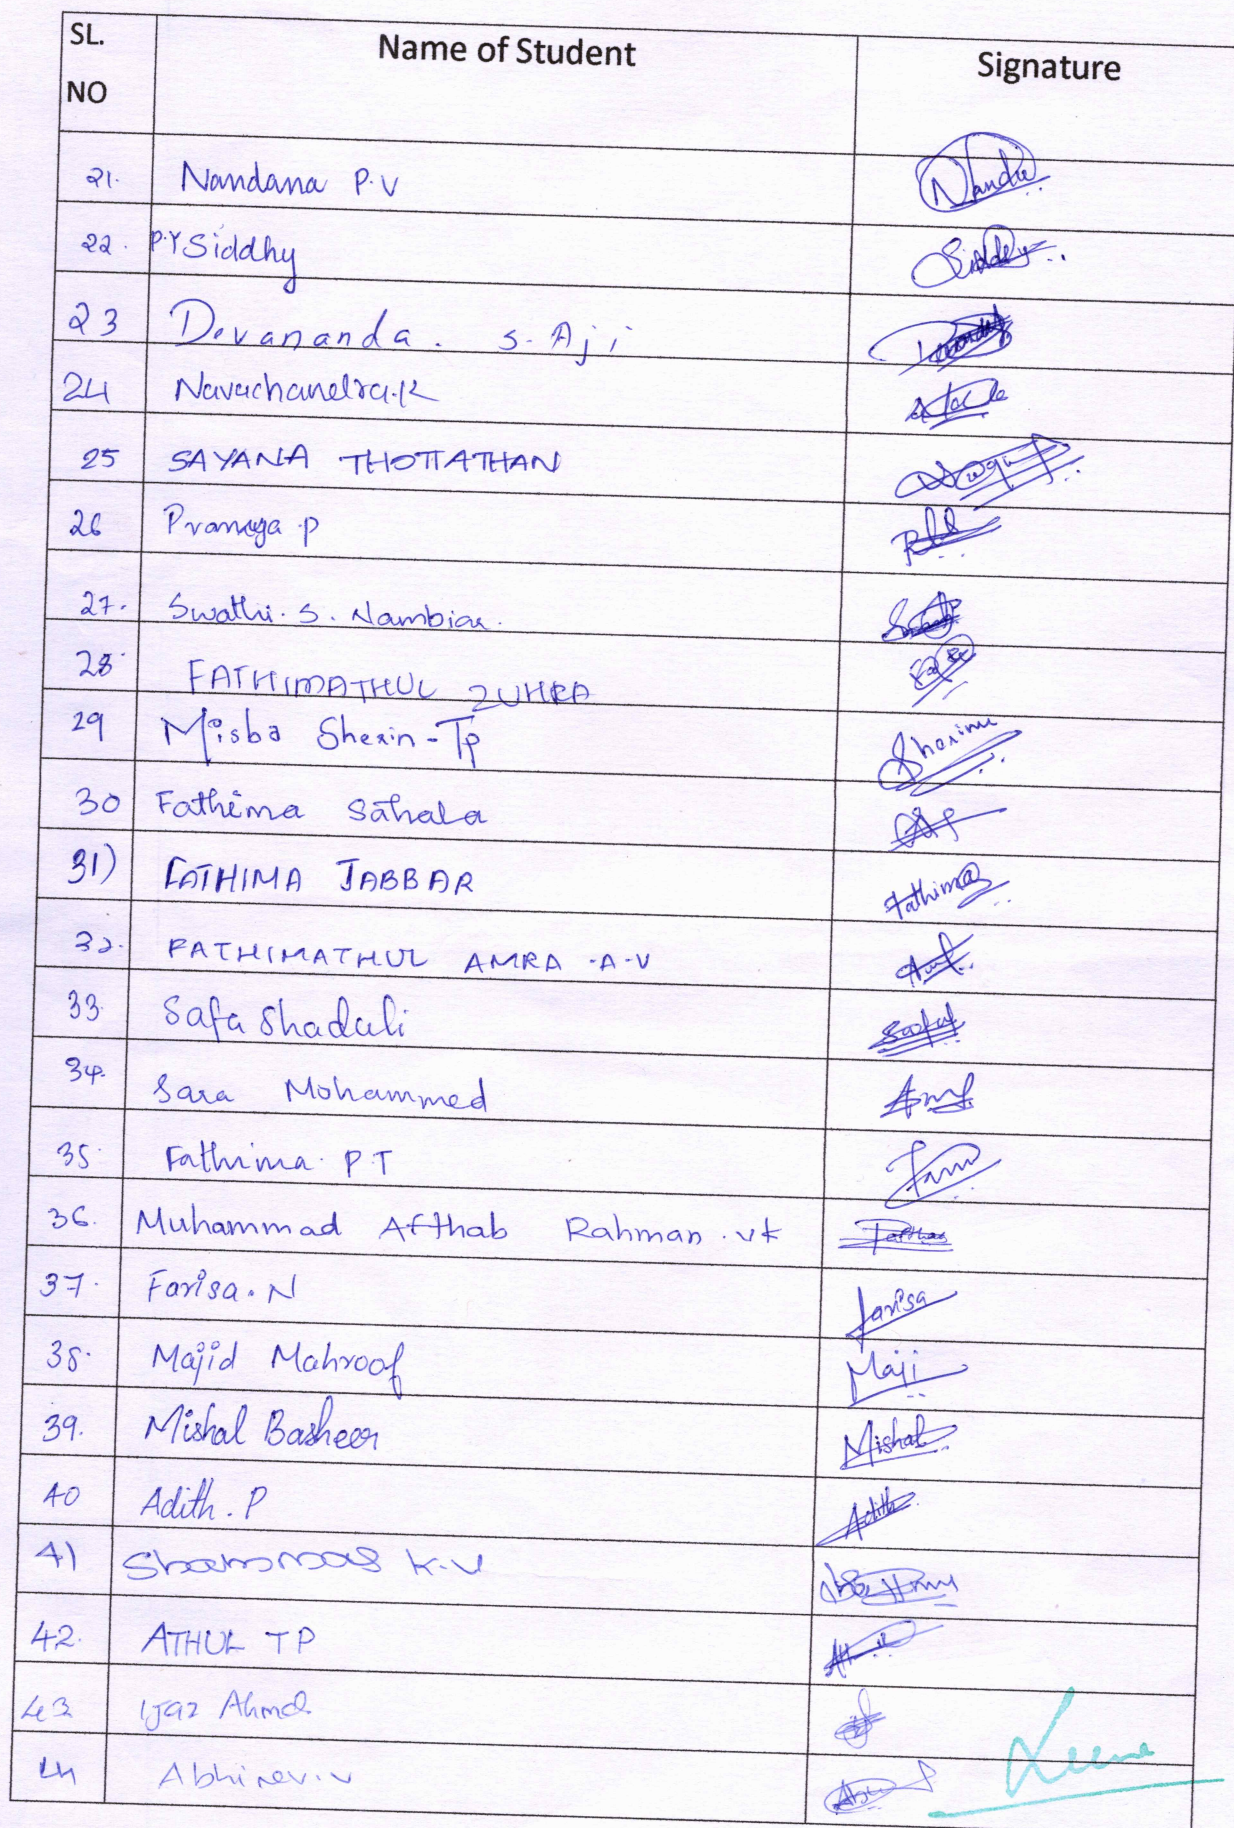 SL. NO Name of Student Signature
21. Nandana P.V Nandu
22. P.Y Siddhy Siddhy
23 Devananda. S. Aji
24 Navachandra.K
25 SAYANA THOTTATHAN
26 Pranaya P
27. Swathi. S. Nambiar.
28 FATHIMATHUL ZUHRA
29 Misba Sherin-Tp Sherinu
30 Fathima Sahala
31) FATHIMA JABBAR Fathima
32. FATHIMATHUL AMRA .A.V
33. Safa Shaduli
34. Sara Mohammed
35. Fathima P.T
36. Muhammad Afthab Rahman.vk
37. Farisa.N Farisa
38. Majid Mahroof Maji
39. Mishal Basheer Mishal
40 Adith.P Adith
41 Shammas K.V
42. ATHUL TP
43 Ijaz Ahmd
44 Abhinav.v